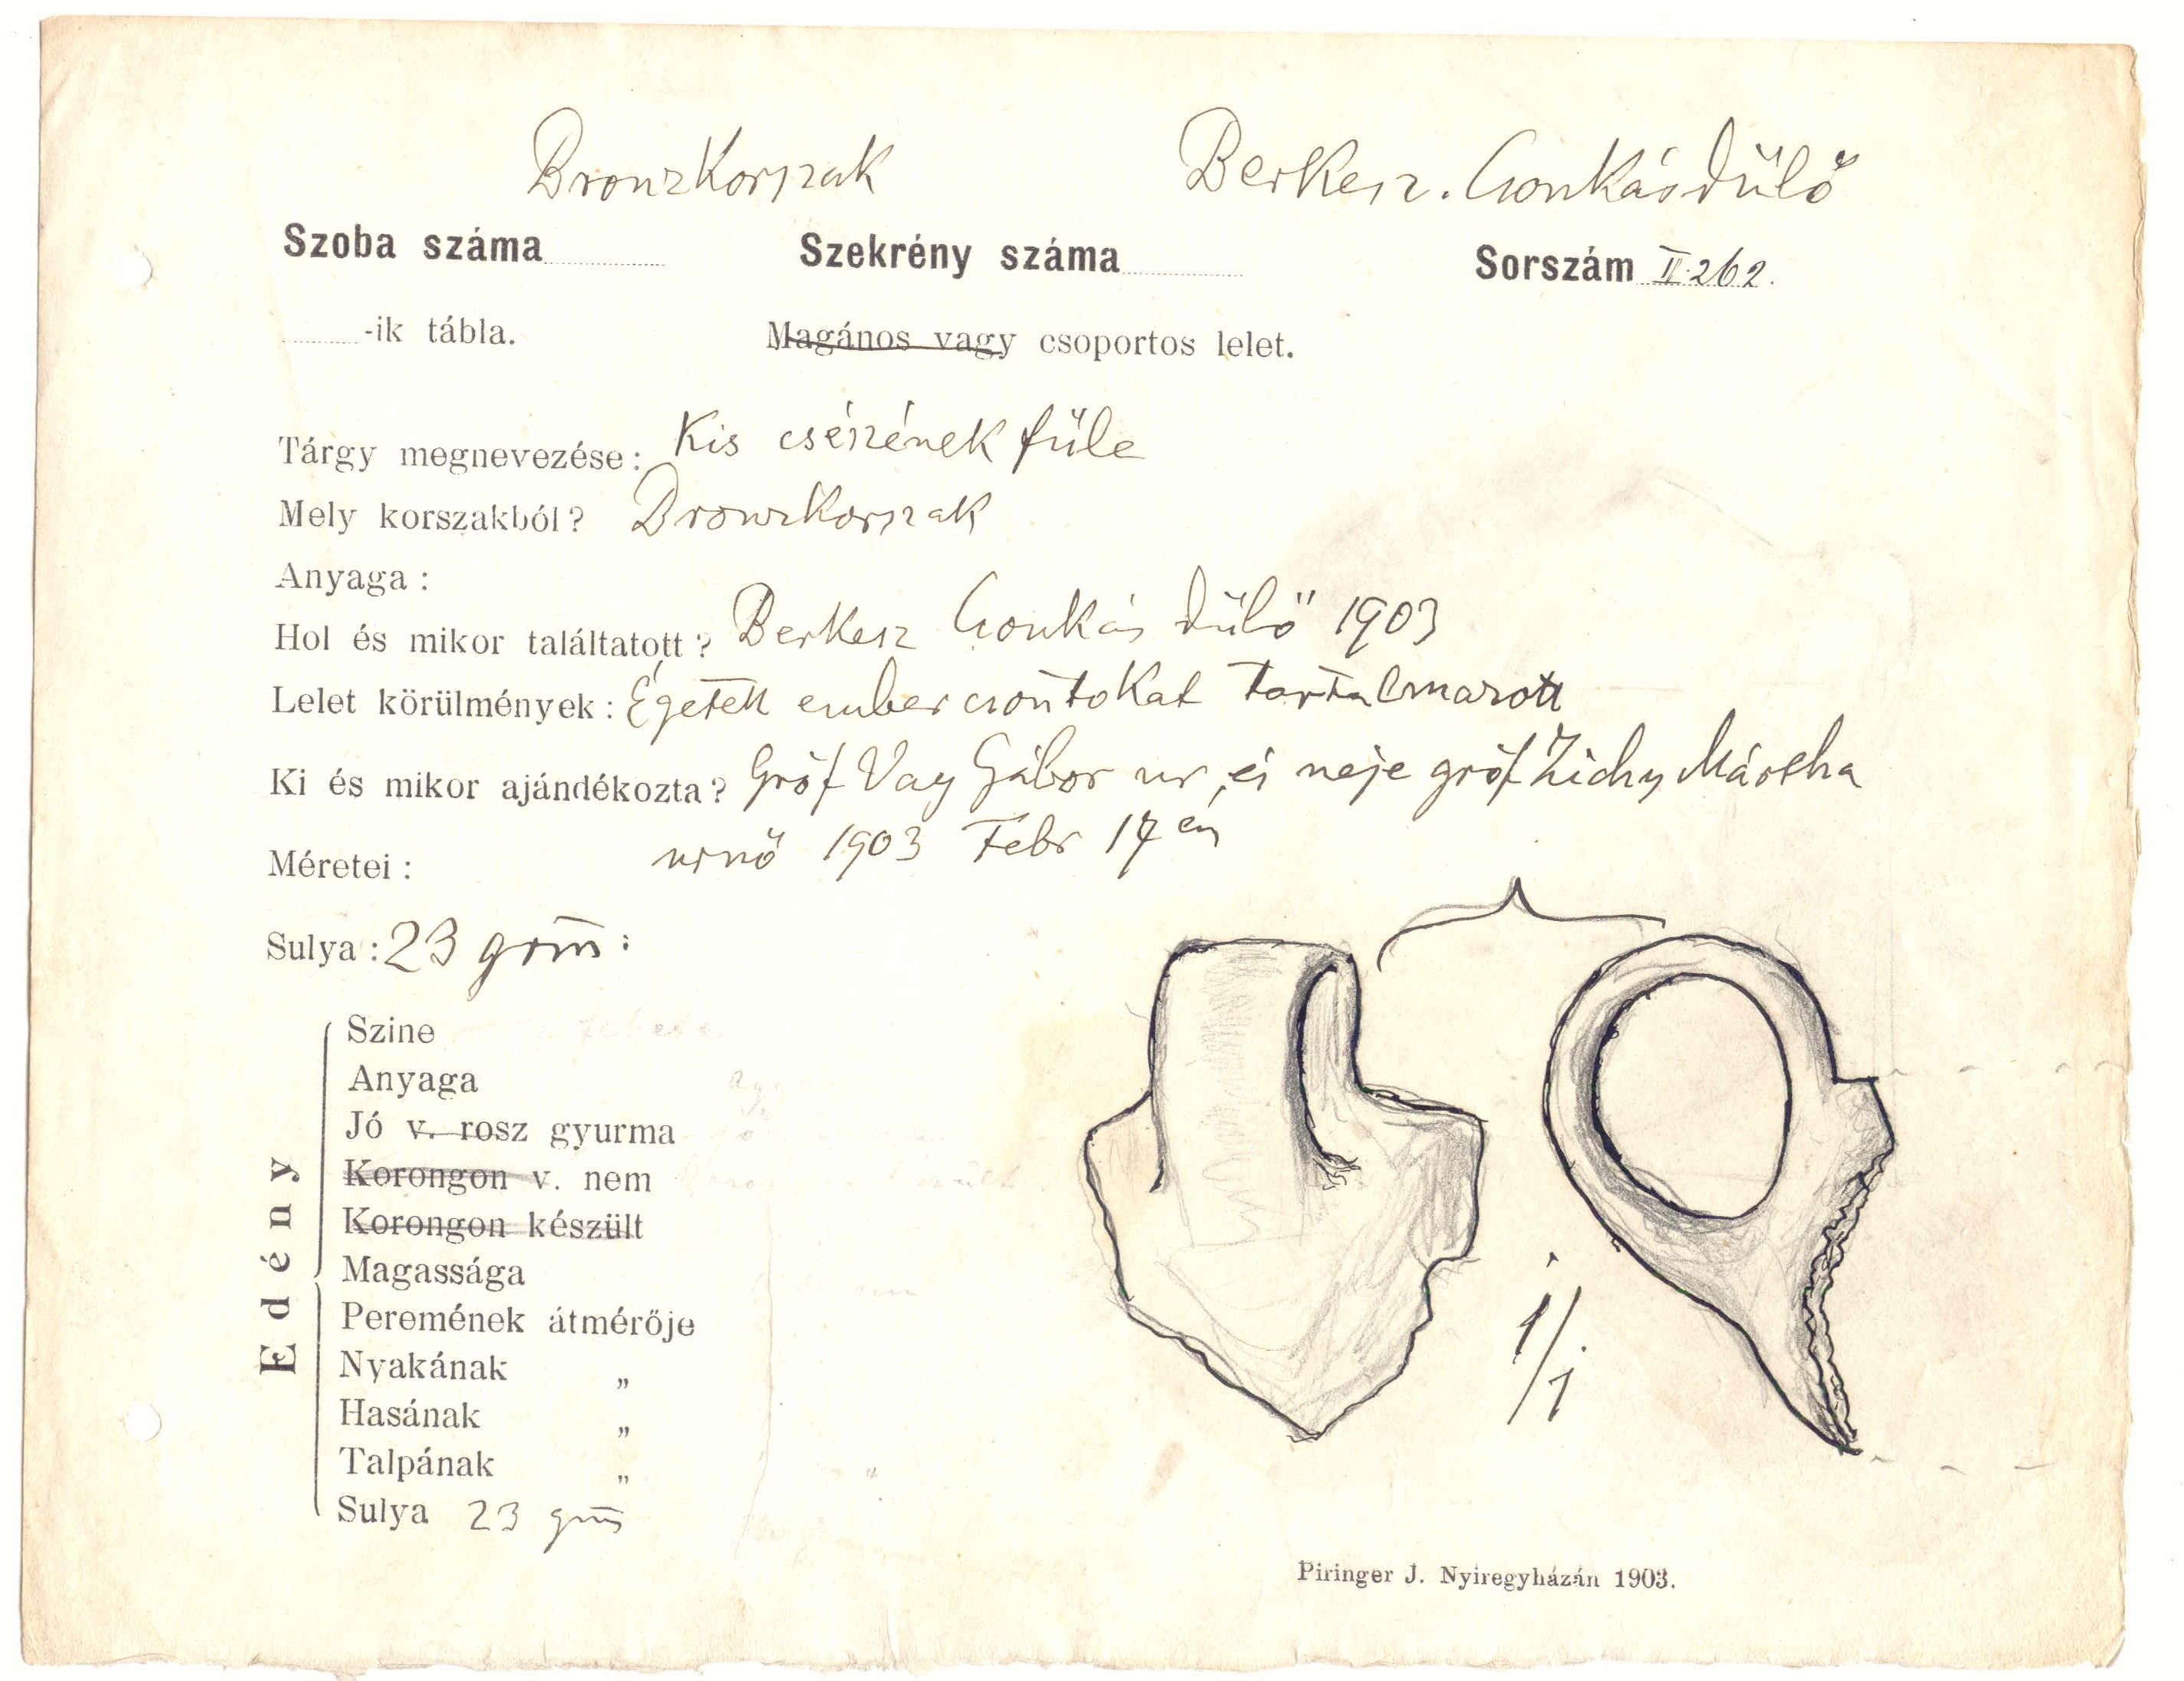 Bronzkorszak Berkesz. Csonkásdűlő
Szoba száma Szekrény száma Sorszám II.262.
-ik tábla. Magános vagy csoportos lelet.
Tárgy megnevezése: Kis csészének füle
Mely korszakból? Bronzkorszak
Anyaga:
Hol és mikor találtatott? Berkesz Csonkás dűlő 1903
Lelet körülmények: Égetett ember csontokat tartalmazott
Ki és mikor ajándékozta? Gróf Vay Gábor ur, és neje gróf Zichy Mártha
urnő 1903 Febr 17 én
Méretei:
Sulya: 23 grm:
Edény
Szine
Anyaga
Jó v. rosz gyurma
Korongon v. nem
Korongon készült
Magassága
Peremének átmérője
Nyakának „
Hasának „
Talpának „
Sulya 23 grm
1/1
Piringer J. Nyiregyházán 1903.